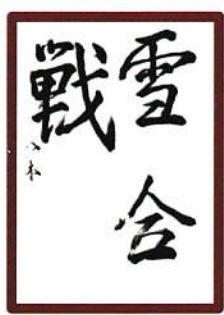 雪合
戰
八木